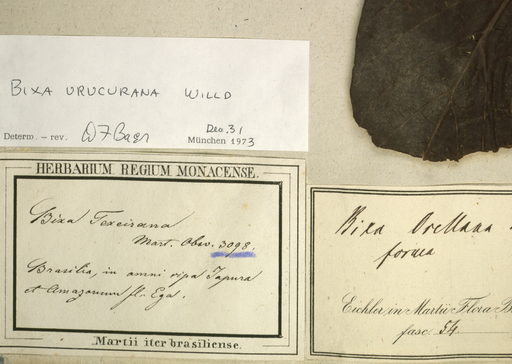 BIXA URUCURANA WILLD
Determ. – rev.
Dec. 31
München 1973
HERBARIUM REGIUM MONACENSE.
Bixa Texeirana
Mart. Obsv. 3098.
Brasilia, in omni ripa Japura
et Amazonum fl. Ega.
Martii iter brasiliense.
Bixa Orellana
forma
Eichler in Martii Flora B
fasc. 54